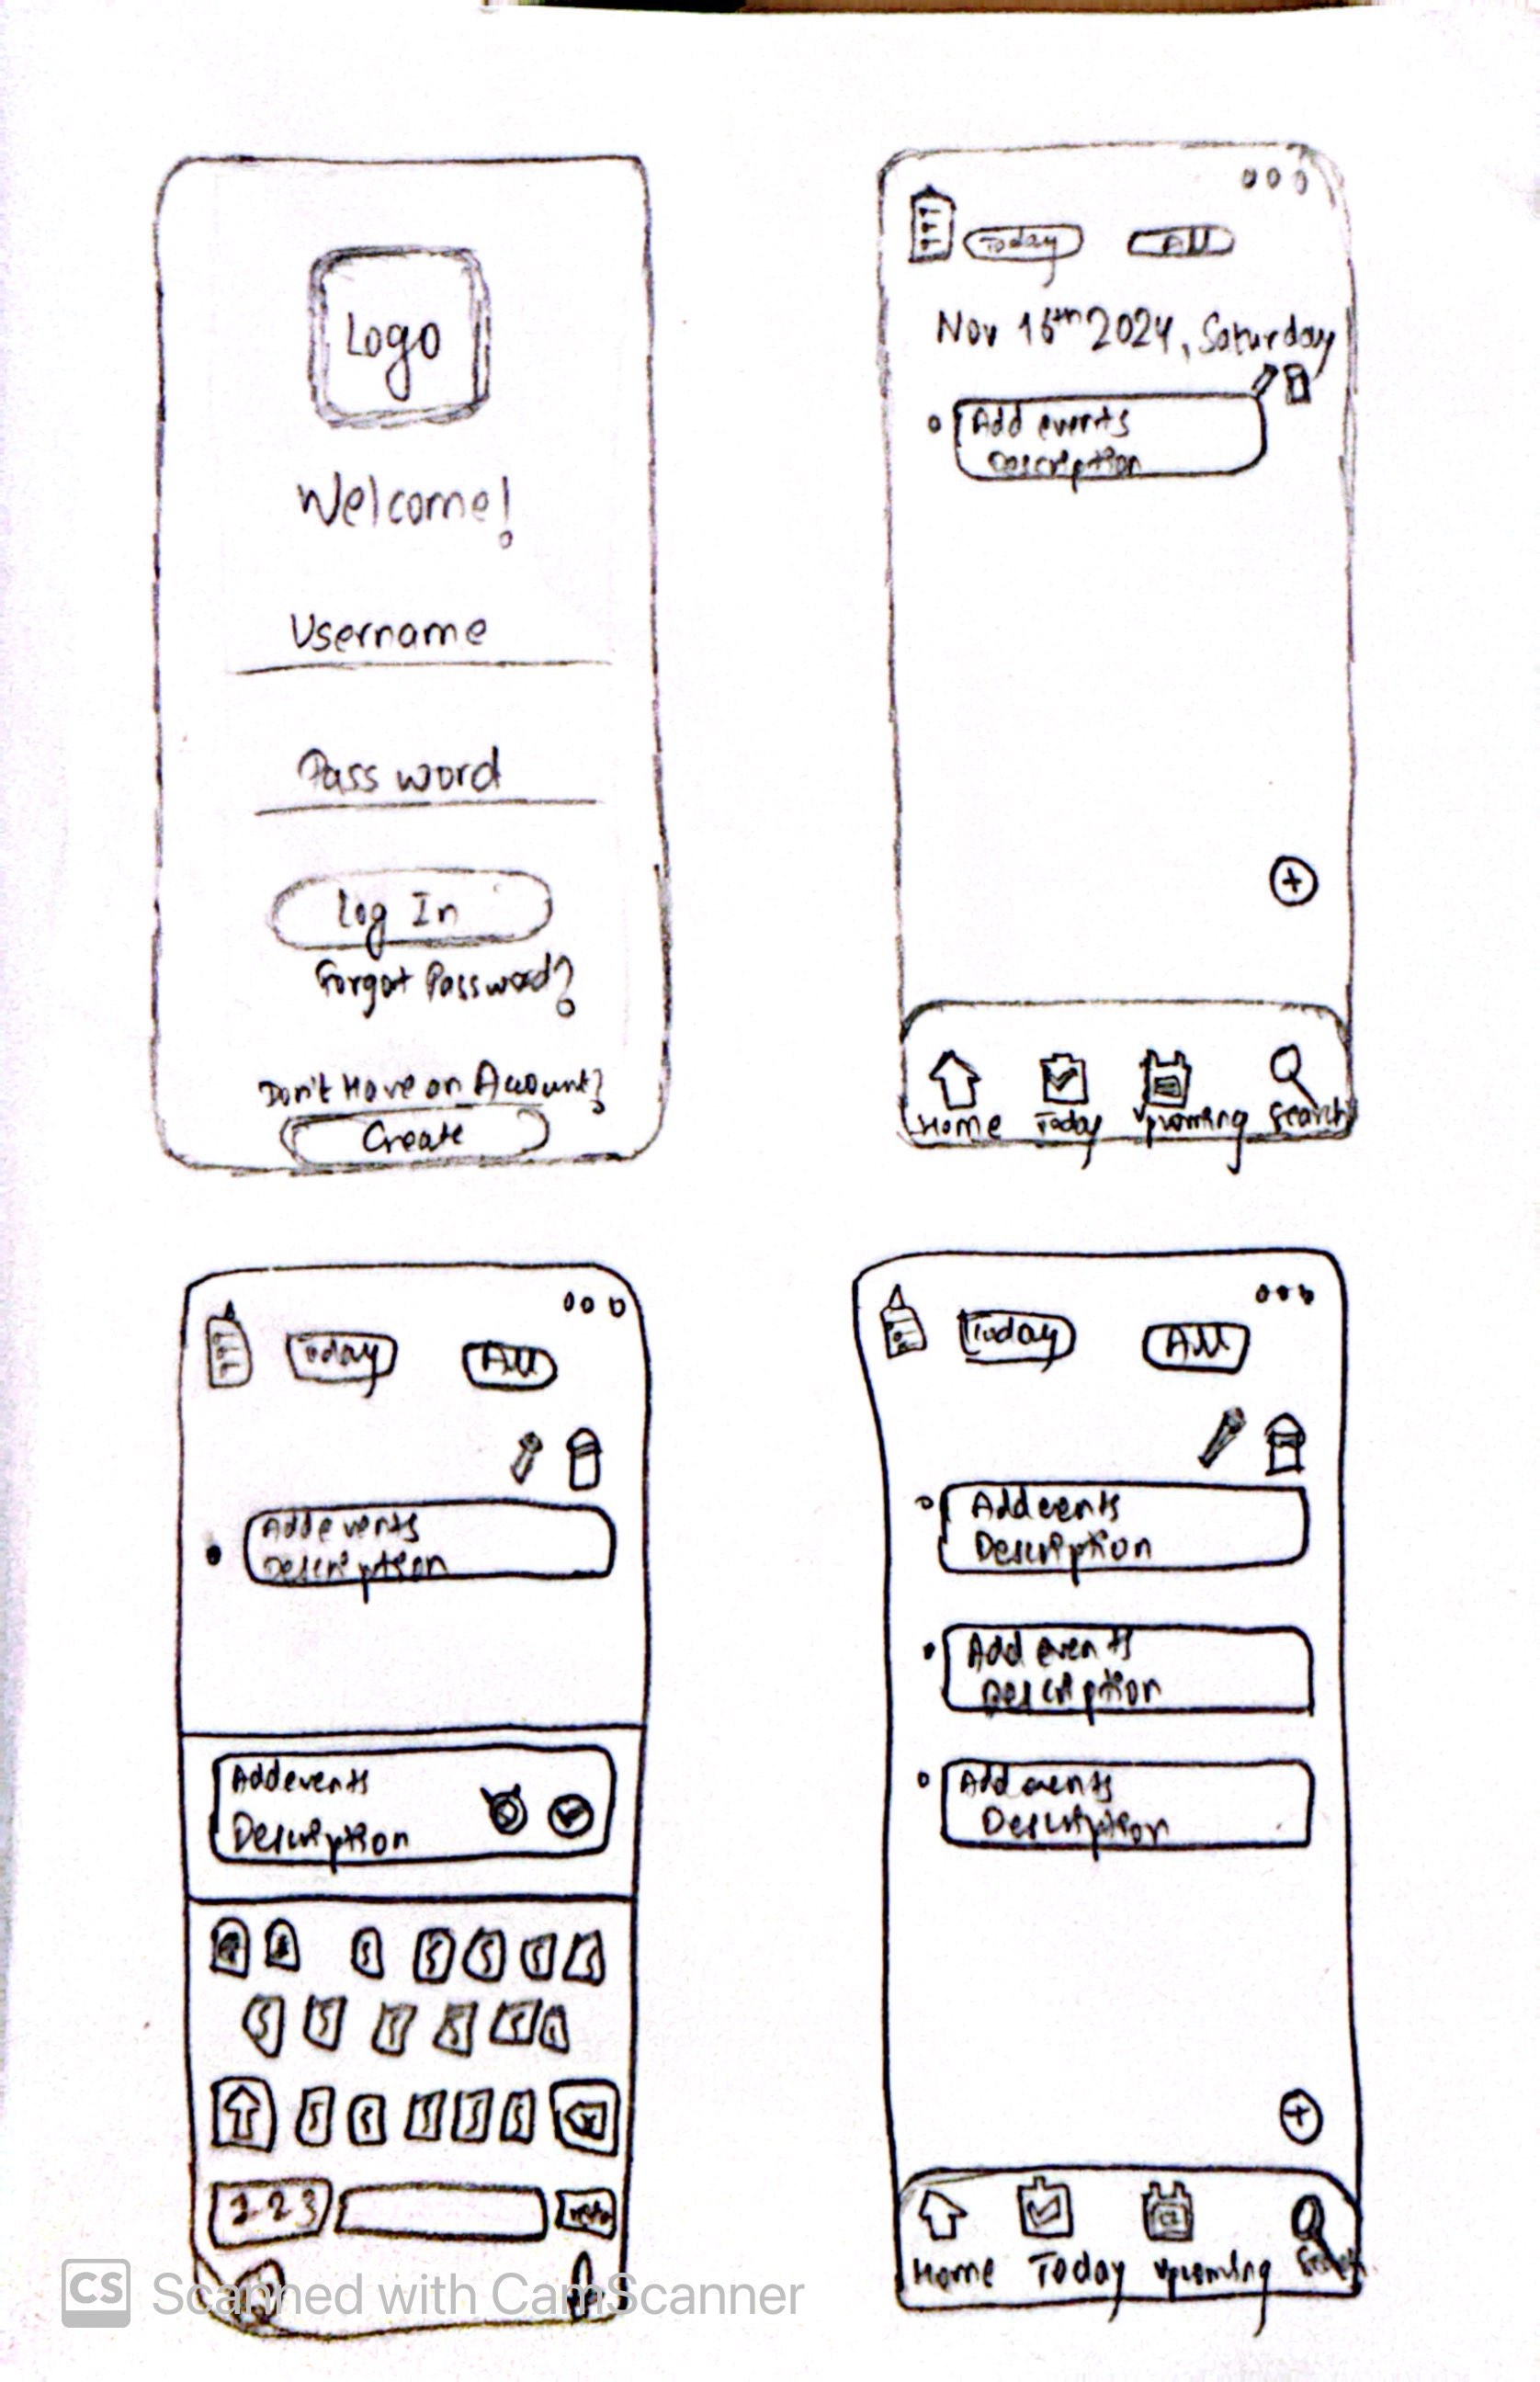 Logo
Welcome!
Username
Password
Log In
Forgot Password?
Don't Have an Account?
Create
Today All
Nov 16th 2024, Saturday
Add events
Description
Home Today Upcoming Search
Today All
Add events
Description
Add events
Description
123
Today All
Add events
Description
Add events
Description
Add events
Description
Home Today Upcoming Search
CS Scanned with CamScanner